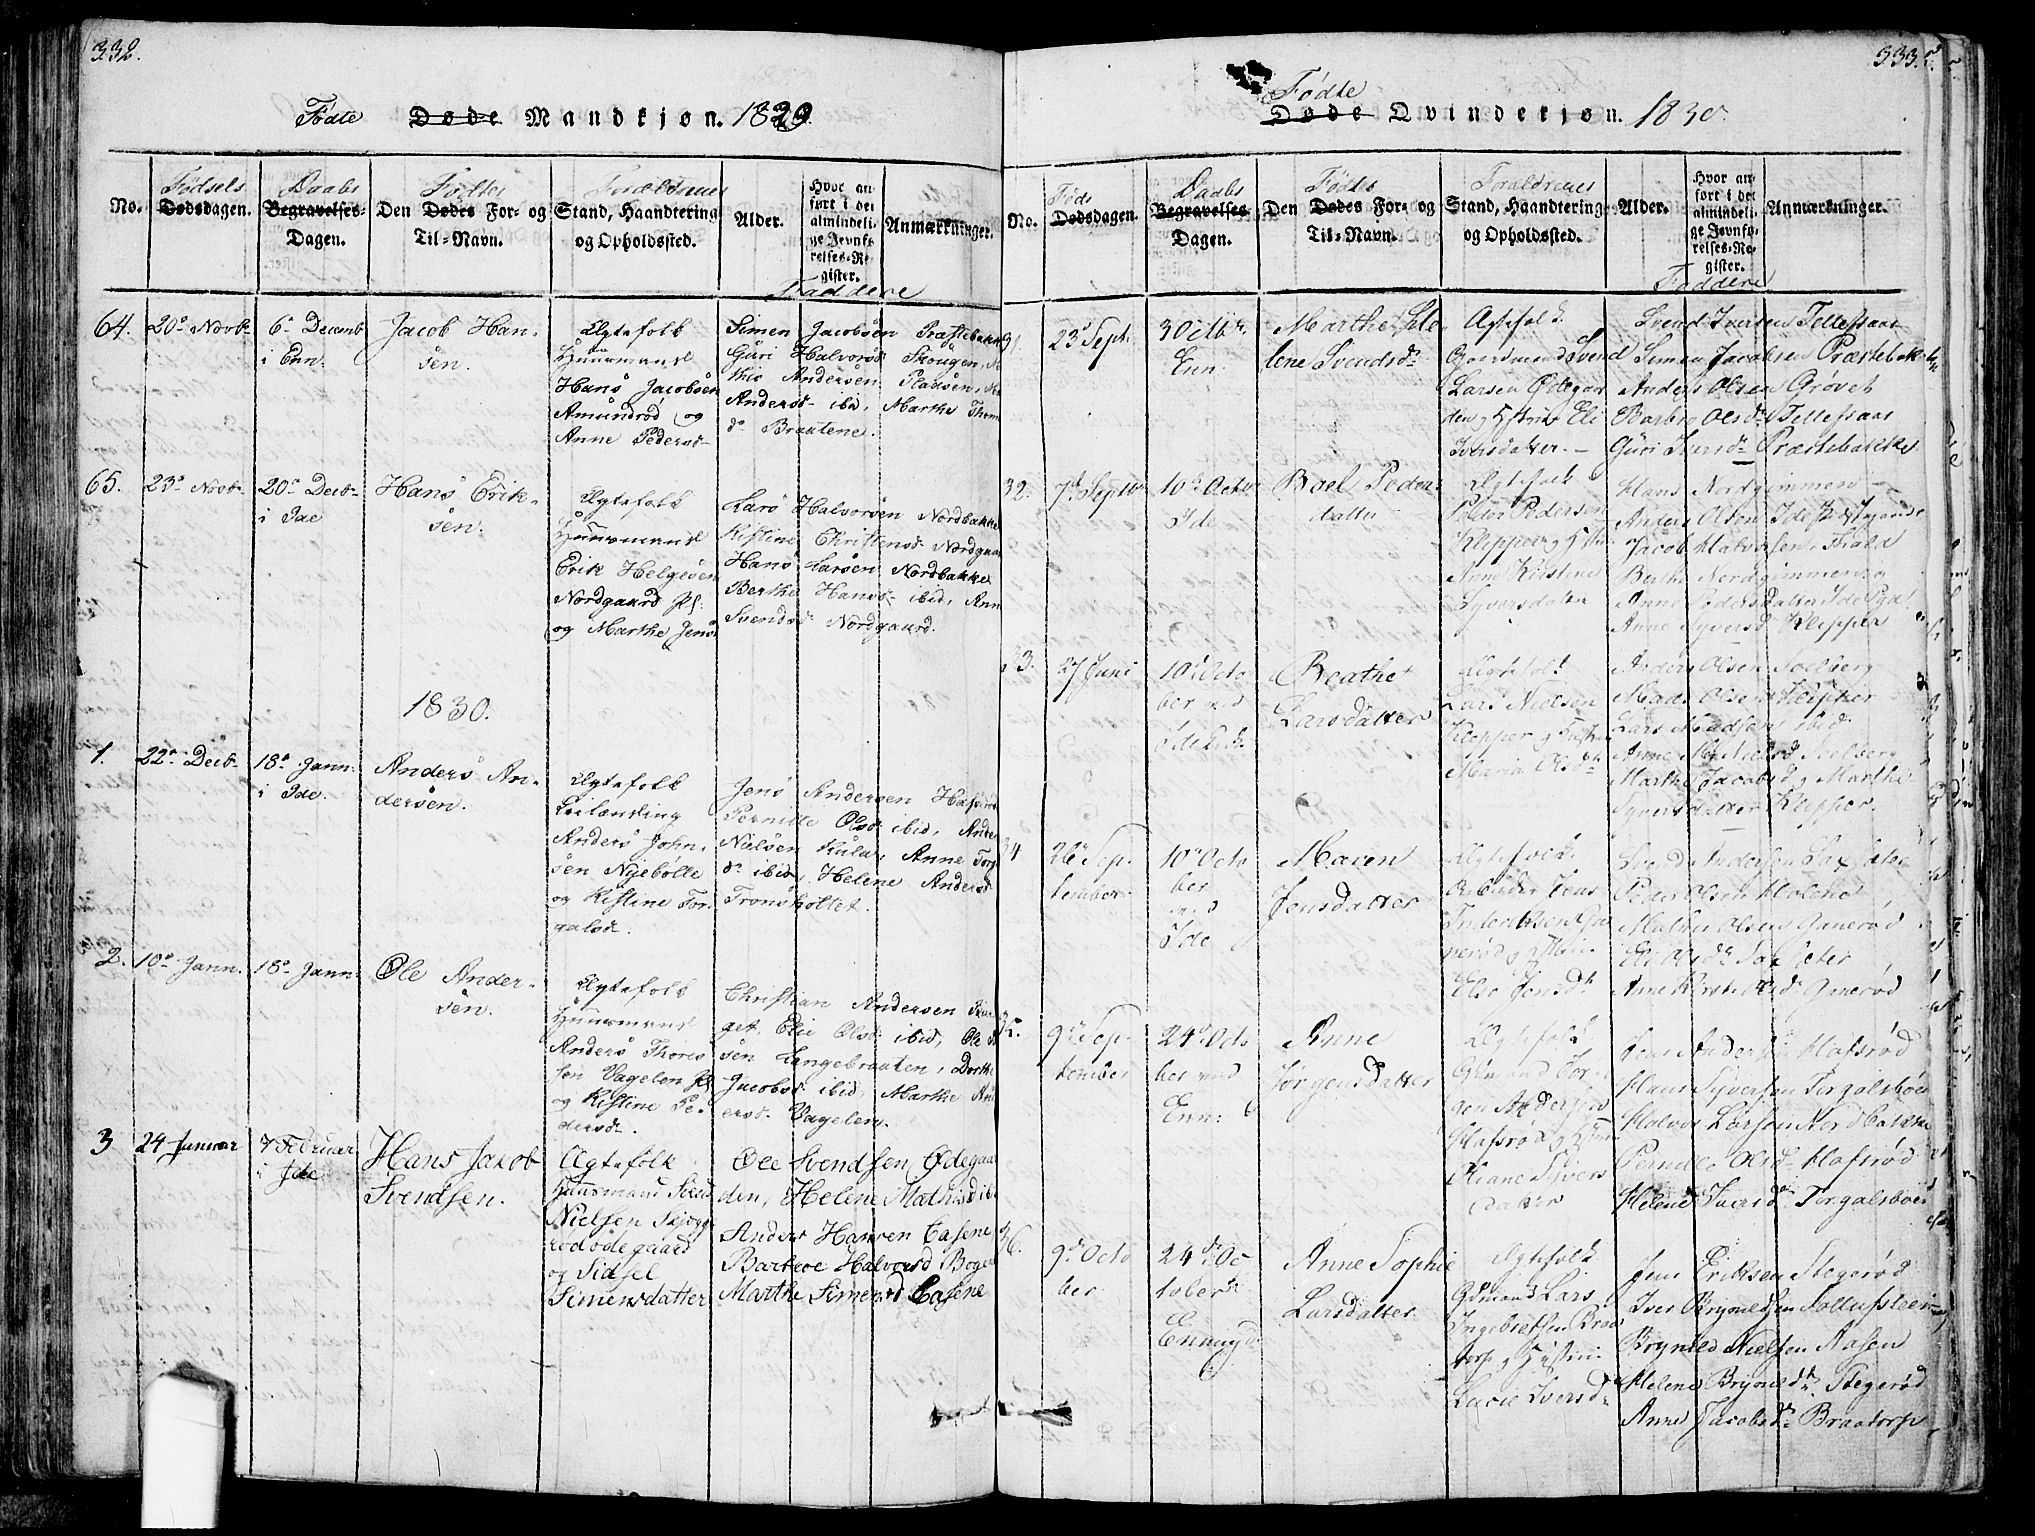 332.
Fødte Døde Mandkjøn. 1829.
No.
Fødsels
Dødsdagen.
Daabs
Begravelses-
Dagen.
Fødtes
Den Dødes For- og
Til-Navn.
Forældrenes
Stand, Haandtering
og Opholdssted.
Alder.
Hvor an-
ført i det
almindeli-
ge Jevnfø-
relses-Re-
gister.
Anmærkninger.
Faddere
64.
20de Novbr
6te Decemb
i Enn.
Jacob Han-
sen.
Ægtefolk
Huusmand
Hans Jacobsen
Amundrød og
Anne Pedersd
Simen Jacobsen Præstebakke
Guri Halvorsd Skougen,
this Andersen Pladsen,
Andersd ibid, Marthe Thom
dr Braatene.
65.
23de Novbr
20de Decbr
i Ide
Hans Erik-
sen.
Ægtefolk
Huusmand
Erik Helgesen
Nordgaard Pl:
og Marthe Jensd
Lars Halvorsen Nordbakke
Kistine Christensd Nordgaar
Hans Larsen Nordbakke
Berthe Hansd ibid, Ann
Svendsd Nordgaard.
1830.
1.
22de Decbr
18de Jann:
i Ide.
Anders An-
dersen.
Ægtefolk
Leilænding
Anders John-
sen Nyebølle
og Kistine Tor-
galsd.
Jens Andersen Hafsrød
Pernille Olsd ibid, Ander
Nielsen Kula, Anne Torg
dr ibid, Helene Andersd
Tronskottet.
2.
10de Jann.
18de Jann.
Ole Ander-
sen.
Ægtefolk
Huusmand
Anders Thores
sen Vagelen Pl
og Kistine Pe-
dersd.
Christian Andersen
get, Elie Olsd ibid, Ole
sen Langebraaten, Dorthe
Jacobsd ibid, Marthe An
ersd Vagelen.
3
24 Januar
7 Februar
i Ide
Hans Jakob
Svendsen.
Ægtefolk
Huusmand Svend
Nielsen Skjegge
rødødegaard
og Sidsel
Simensdatter
Ole Svendsen Ødegaar
den, Helene Mathisd ib
Anders Hansen Casene
Barbroe Halvorsd Bogen
Marthe Simensd Casene
333.
Fødte
Døde Qvindekjøn. 1830.
No.
Føds
Dødsdagen.
Daabs
Begravelses-
Dagen.
Fødtes
Den Dødes For- og
Til-Navn.
Forældrenes
Stand, Haandtering
og Opholdssted.
Alder.
Hvor an-
ført i det
almindeli-
ge Jevnfø-
relses-Re-
gister.
Anmærkninger.
Faddere
23de Sept.
3 Octbr.
Enn.
Marthe He
lene Svendsdr
Ægtefolk
Gaardmand Svend
Larsen Ødegar
den og Hustrue Eli
Iversdatter.
Svend Iversen Tellefsaas
Simen Jacobsen Præstebak
Anders Olsen Grøvet
Barbro Olsdr Tellefsaas
Guri Iversdr Præstebakke
32.
7de Septbr
10de Octbr
Ide
Boel Peder-
datter
Ægtefolk
Peder Pedersen
Klepper og Hstr
Anne Kirstine
Syversdatter
Hans Nordgimmen
Anders Olsen Ide
Jacob Halvorsen Thale
Berthe Nordgimmen og
Anne Pedersdatter Ide Pga
Anne Syversd Klepper
33.
27 Juni
10de Octo
ber ved
Ide Kirk.
Beathe
Larsdatter
Ægtefolk
Lars Nielsen
Klepper og Hustru
Maria Olsdtr
Anders Olsen Solberg
Mads Olsen Klepper
Lars Madsen ibid.
Anne M Nielsd Solberg
Marthe Jacobsd og Marthe
Syversdatter Klepper.
34
26de Sep-
tember
10de Octo
ber
ved
Ide
Maren
Jensdatter
Ægtefolk
Arbeider Jens
Frederiksen
nerød og Hstru
Else Jensdtr
Svend Andersen Sax
Peder Olsen Holene
Halvor Olsen Gunerød
Eli Olsdr Saxsæter
Anne Kirst. Olsdr Gunerød
35.
9de Sep-
tember
24de Octo
ber ved
Enn:
Anne
Jørgensdatter
Ægtefolk
Gmand Jør-
gen Andersen
Hafsrød og Hstru
Oliane Syvers
datter
Jens Andersen Hafsrød
Hans Syversen Torgalsbøe
Halvor Larsen Nordbakke
Pernille Olsdr Hafsrød
Helene Iversdr Torgalsbøe
36.
9de Octo
ber
24de Oc
tober
Enningd:
Anne Sophie
Larsdatter
Ægtefolk
Gdmand Lars
Ingebretsen Braa
torp og Hustru
Lucie Iversdr
Jens Eriksen Stegerød
Iver Brynildsen Folkufsteen
Brynild Nielsen Aasen
Helene Bryneldtr Stegerød
Anne Jacobsdr Braatorp